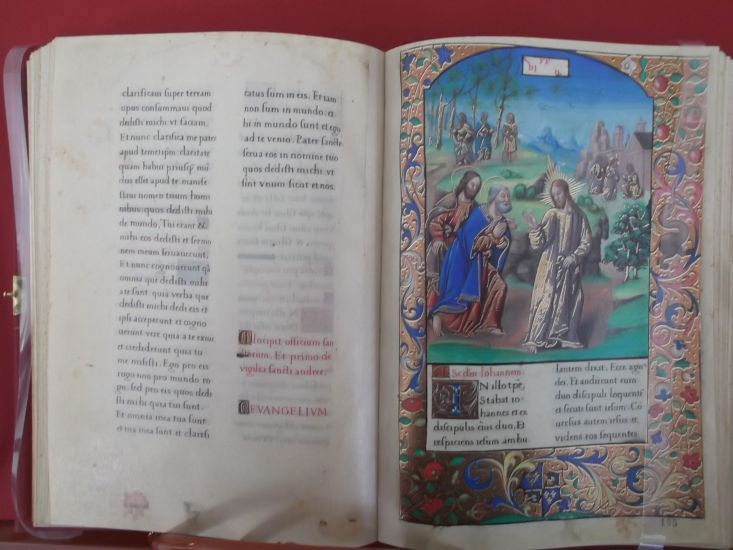 clarificaui super terram
opus consummaui quod
dedisti michi vt faciam.
Et nunc clarifica me pater
apud temetipm. claritate
quam habui priusq̃ mũ
dus esset apud te manife
staui nomen tuum homi
nibus quos dedisti mihi
de mundo. Tui erant &
mihi eos dedisti et sermo
nem meum seruauerunt.
Et nunc cognouerunt q̃
omnia que dedisti michi
a te sunt quia verba que
dedisti michi dedi eis et
ipsi acceperunt et cogno
uerunt vere quia a te exiui
et crediderunt quia tu
me misisti. Ego pro eis
rogo non pro mundo ro
go: sed pro eis quos dedi
sti michi quia tui sunt.
Et omnia mea tua sunt
et tua mea sunt et clarifi
catus sum in eis. Et iam
non sum in mundo &
hi in mundo sunt et ego
ad te venio. Pater sancte
serua eos in nomine tuo
quos dedisti michi vt
sint vnum sicut et nos.
Incipit officium san
ctorum. Et primo de
vigilia sancti andree.
EVANGELIVM.
Secdm Iohannem.
IN illo tp̃e.
Stabat io
hannes et ex
discipulis eius duo. Et
respiciens iesum ambu
lantem dixit. Ecce agn
dei. Et audierunt eum
duo discipuli loquentẽ
et secuti sunt iesum. Cõ
uersus autem iesus et
videns eos sequentes